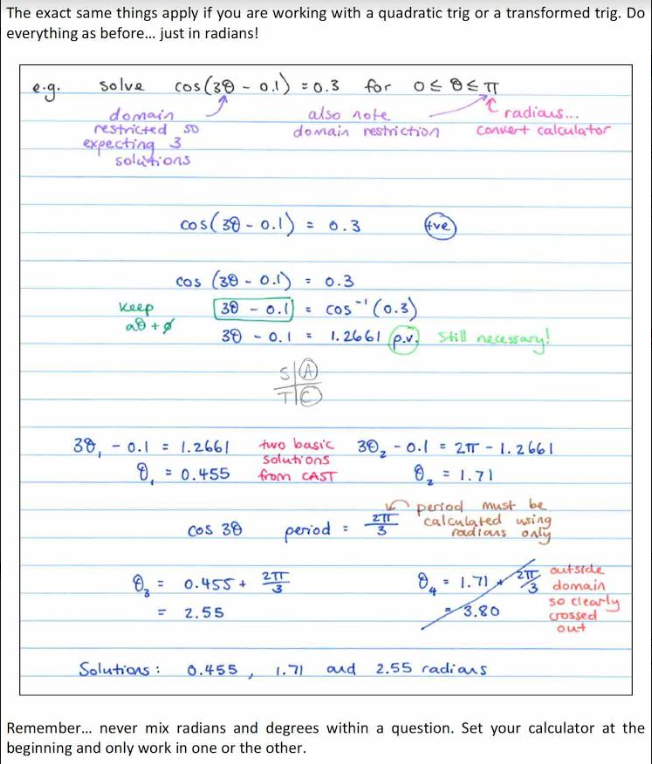 The exact same things apply if you are working with a quadratic trig or a transformed trig. Do
everything as before... just in radians!
e.g. solve cos(3θ - 0.1) = 0.3 for 0 ≤ θ ≤ π
domain
restricted so
expecting 3
solutions
also note
domain restriction
radians...
convert calculator
cos(3θ - 0.1) = 0.3 +ve
cos (3θ - 0.1) = 0.3
keep
aθ + ø
3θ - 0.1 = cos⁻¹(0.3)
3θ - 0.1 = 1.2661 p.v. still necessary!
S A
T C
3θ₁ - 0.1 = 1.2661
θ₁ = 0.455
two basic
solutions
from CAST
3θ₂ - 0.1 = 2π - 1.2661
θ₂ = 1.71
cos 3θ period = 2π/3
period must be
calculated using
radians only
θ₃ = 0.455 + 2π/3
= 2.55
θ₄ = 1.71 + 2π/3
= 3.80
outside
domain
so clearly
crossed
out
Solutions: 0.455, 1.71 and 2.55 radians
Remember... never mix radians and degrees within a question. Set your calculator at the
beginning and only work in one or the other.